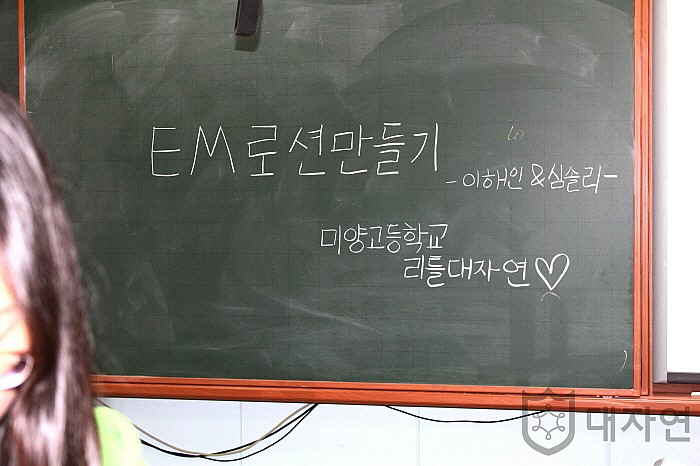 EM로션만들기
-이해인 &심슬리-
미양고등학교
리틀대자연♡
대자연